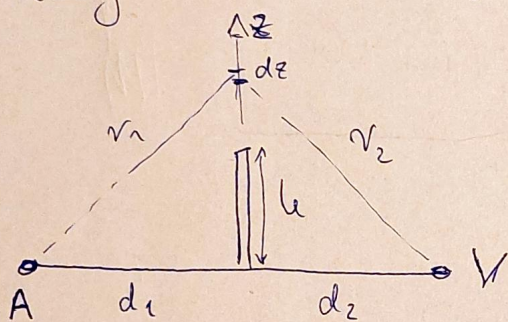 z
dz
r₁
r₂
h
A
d₁
d₂
V